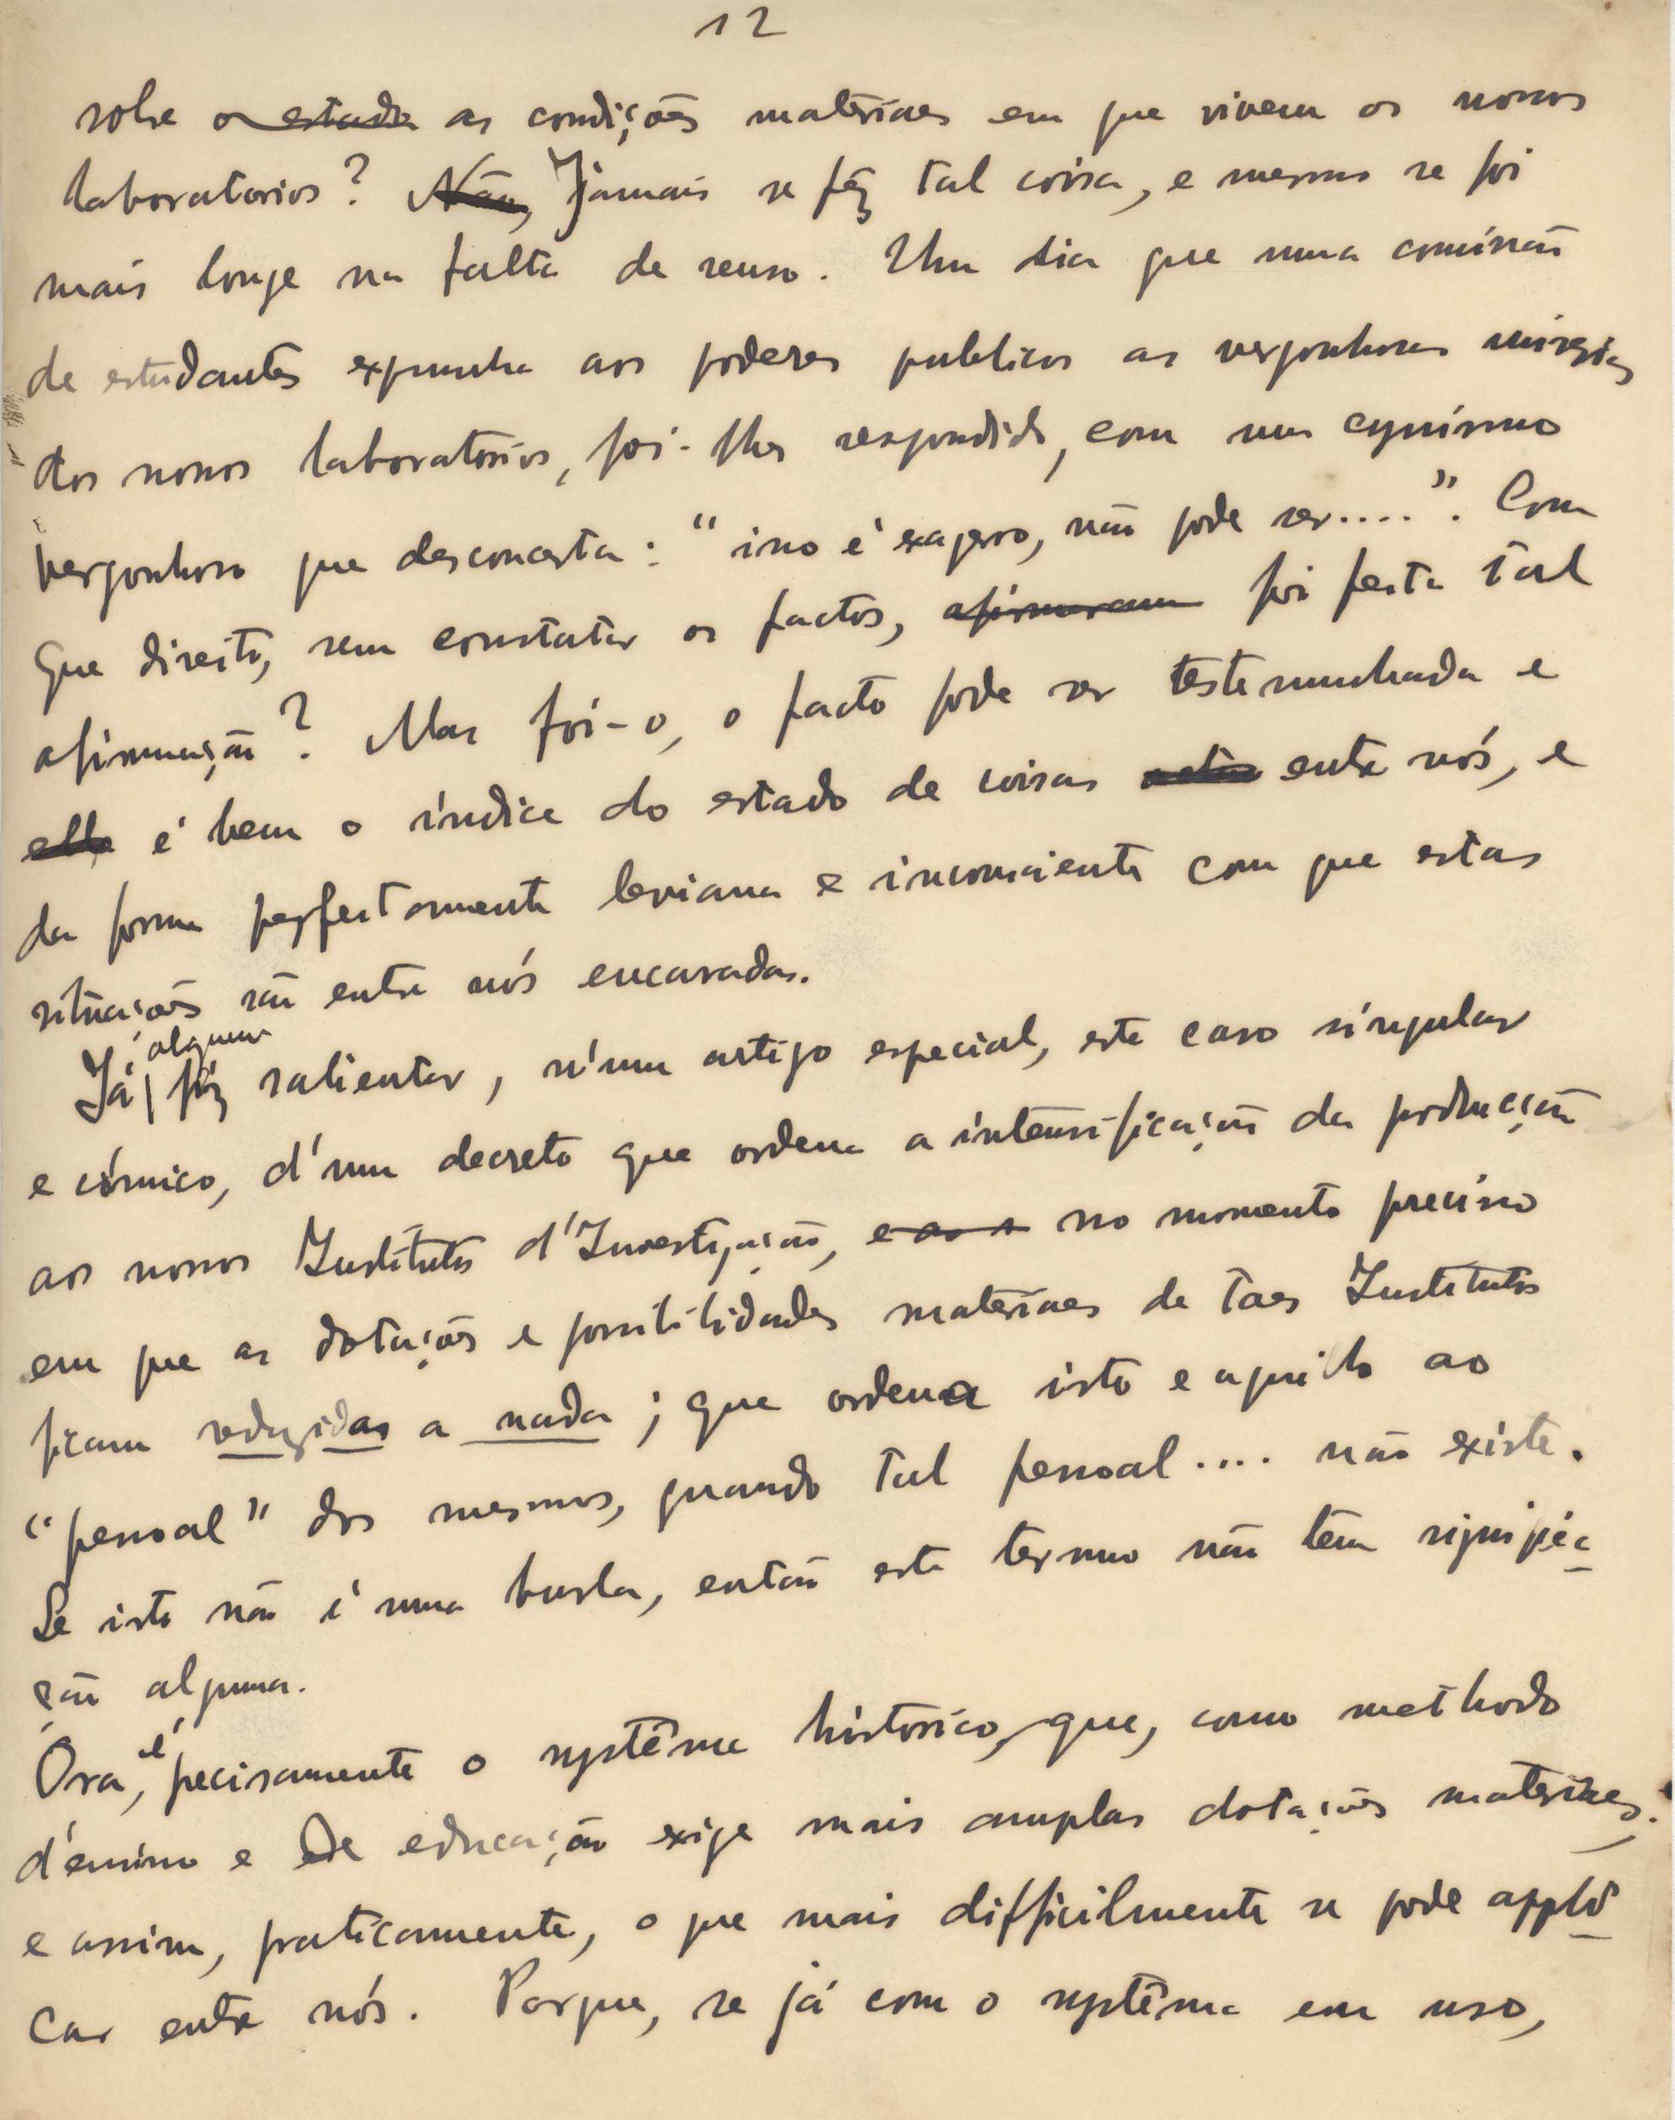 12
sobre o estado as condições materiaes em que vivem os nossos
laboratorios? Não, Jamais se fêz tal coisa, e mesmo se foi
mais longe na falta de senso. Um dia que uma comissão
de estudantes expunha aos poderes publicos as vergonhosas misérias
dos nossos laboratórios, foi-lhes respondido, com um cynismo
vergonhoso que desconcerta: "isso é exagero, não pode ser....". Com
que direito, sem constatar os factos, afirmaram foi feita tal
afirmação? Mas foi-o, o facto pode ser testemunhada e
elle é bem o índice do estado de coisas entre nós, e
da forma perfeitamente leviana e inconsciente com que estas
situações são entre nós encaradas.
Já alguem fêz salientar, n'um artigo especial, este caso singular
e cómico, d'um decreto que ordena a intensificação da producção
aos nossos Institutos d'Investigação, e ao s no momento preciso
em que as dotações e possibilidades materiaes de taes Institutos
ficam reduzidas a nada; que ordena isto e aquilo ao
"pessoal" dos mesmos, quando tal pessoal .... não existe.
Se isto não é uma burla, então este termo não tem signific̲a̲
ção alguma.
Ora, é pecisamente o systêma histórico, que, como methodo
d'ensino e de educação exige mais amplas dotações materiaes,
e assim, praticamente, o que mais difficilmente se pode appli
car entre nós. Porque, se já com o systêma em uso,